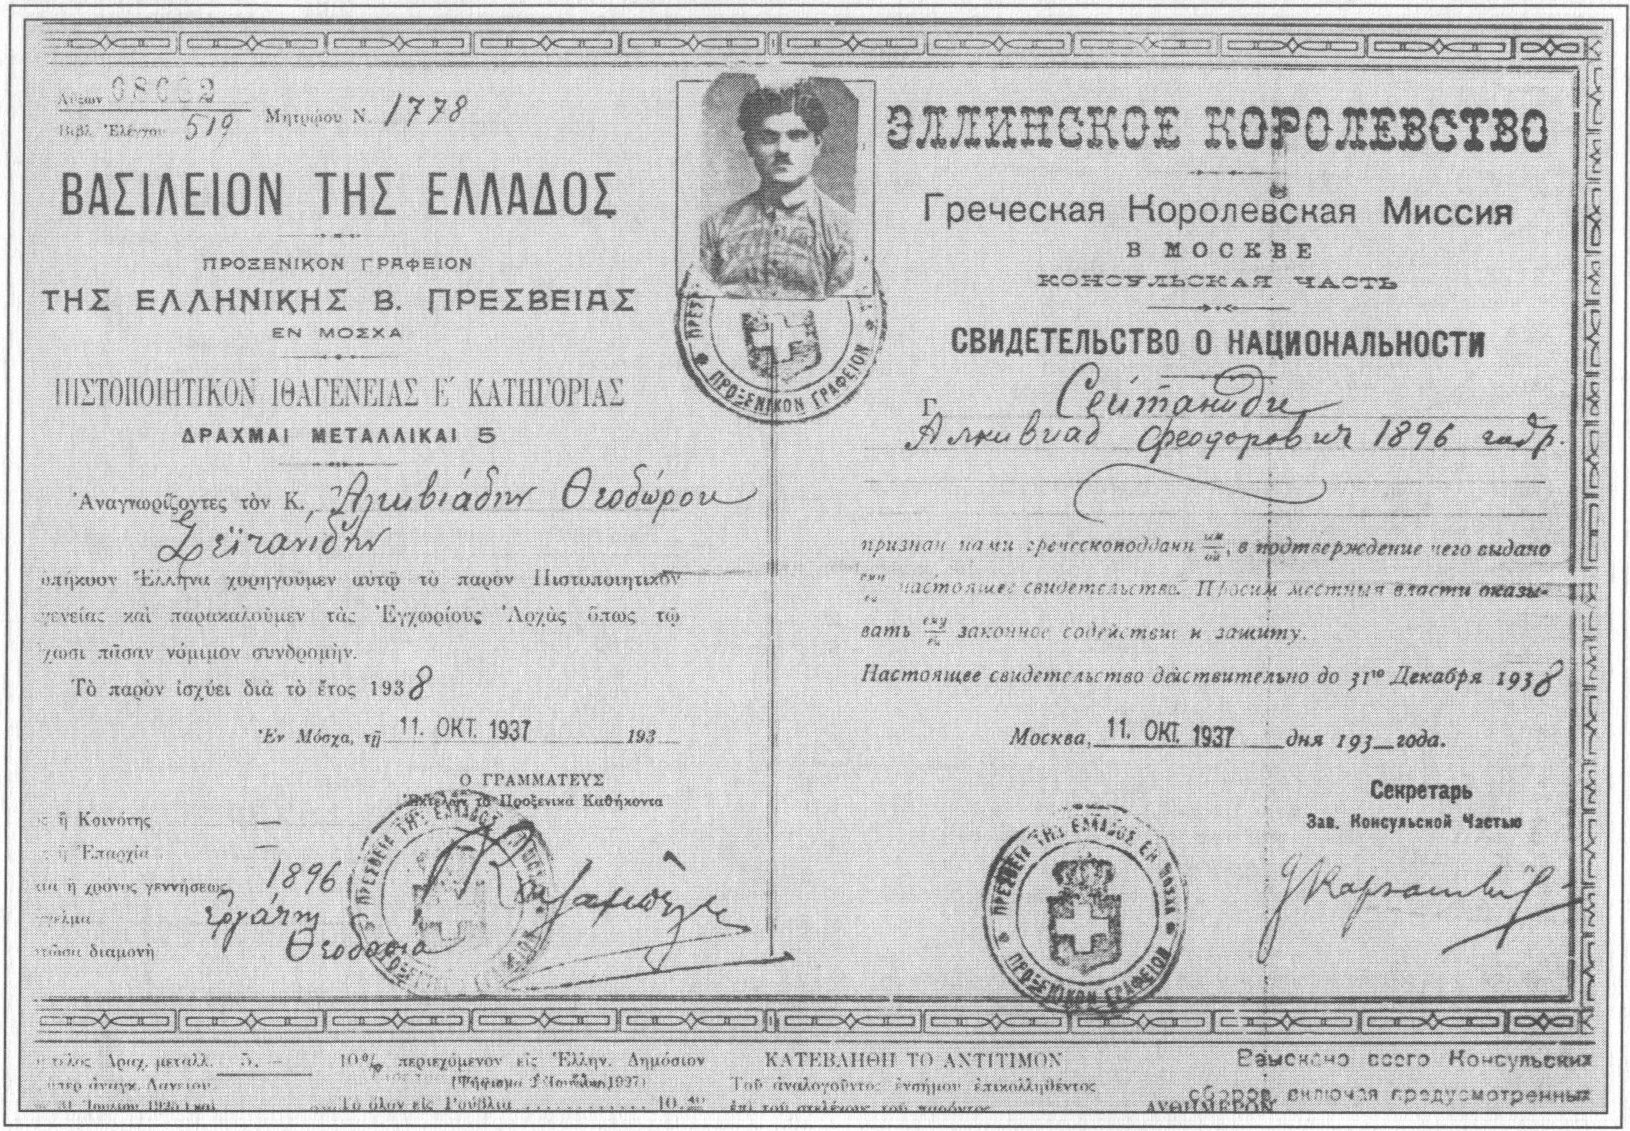 Αὔξων 08662
Βιβλ. Ἐλέγχου 519 Μητρῴου Ν. 1778
ΒΑΣΙΛΕΙΟΝ ΤΗΣ ΕΛΛΑΔΟΣ
ΠΡΟΞΕΝΙΚΟΝ ΓΡΑΦΕΙΟΝ
ΤΗΣ ΕΛΛΗΝΙΚΗΣ Β. ΠΡΕΣΒΕΙΑΣ
ΕΝ ΜΟΣΧΑ
ΠΙΣΤΟΠΟΙΗΤΙΚΟΝ ΙΘΑΓΕΝΕΙΑΣ Ε΄ ΚΑΤΗΓΟΡΙΑΣ
ΔΡΑΧΜΑΙ ΜΕΤΑΛΛΙΚΑΙ 5
Ἀναγνωρίζοντες τὸν Κ. Ἀλκιβιάδην Θεοδώρου
Σεϊτανίδην
ὑπήκοον Ἕλληνα χορηγοῦμεν αὐτῷ τὸ παρὸν Πιστοποιητικὸν
γενείας καὶ παρακαλοῦμεν τὰς Ἐγχωρίους Ἀρχὰς ὅπως τῷ
χωσι πᾶσαν νόμιμον συνδρομήν.
Τὸ παρὸν ἰσχύει διὰ τὸ ἔτος 1938
Ἐν Μόσχᾳ, τῇ 11. ΟΚΤ. 1937 193
Ο ΓΡΑΜΜΑΤΕΥΣ
Ἐκτελῶν τὰ Προξενικὰ Καθήκοντα
ἢ Κοινότης —
ἢ Ἐπαρχία —
ἢ χρόνος γεννήσεως 1896
γελμα ἐργάτης
διαμονὴ Θεοδοσία
ΠΡΕΣΒΕΙΑ ΤΗΣ ΕΛΛΑΔΟΣ
ΠΡΟΞΕΝΙΚΟΝ ΓΡΑΦΕΙΟΝ
ЭЛЛИНСКОЕ КОРОЛЕВСТВО
Греческая Королевская Миссия
В МОСКВЕ
КОНСУЛЬСКАЯ ЧАСТЬ
СВИДЕТЕЛЬСТВО О НАЦИОНАЛЬНОСТИ
Г. Сейтаниди
Алкивиад Феодорович 1896
признан нами греческоподданн ым ой, в подтверждение чего выдано
ему ей настоящее свидетельство. Просим местныя власти оказы-
вать ему ей законное содействие и защиту.
Настоящее свидетельство действительно до 31го Декабря 1938
Москва, 11. ОКТ. 1937 дня 193 года.
Секретарь
Зав. Консульской Частью
ΠΡΕΣΒΕΙΑ ΤΗΣ ΕΛΛΑΔΟΣ ΕΝ ΜΟΣΧΑ
ΠΡΟΞΕΝΙΚΟΝ ΓΡΑΦΕΙΟΝ
τέλος Δραχ. μεταλλ. 5. —
10 % περιεχόμενον εἰς Ἑλλην. Δημόσιον
Τὸ ὅλον εἰς Ρούβλια 10.40
ΚΑΤΕΒΛΗΘΗ ΤΟ ΑΝΤΙΤΙΜΟΝ
Τοῦ ἀναλογοῦντος ἐνσήμου ἐπικολληθέντος
ἐπὶ τοῦ στελέχους τοῦ παρόντος
ΑΥΘΗΜΕΡΟΝ
Взыскано всего Консульских
сборов, включая предусмотренных